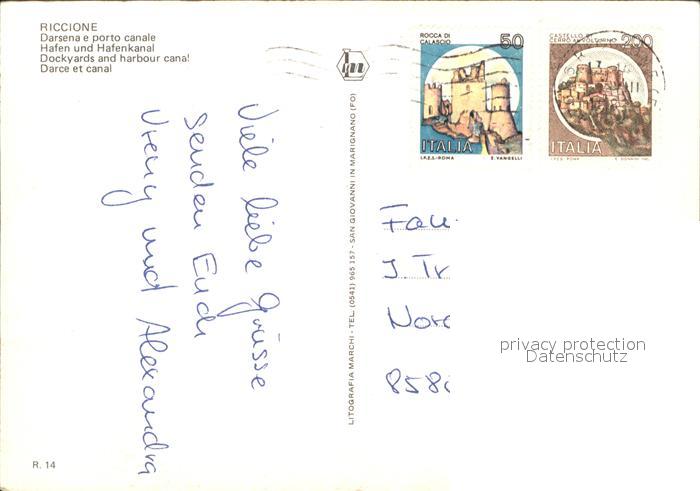 RICCIONE
Darsena e porto canale
Hafen und Hafenkanal
Dockyards and harbour canal
Darce et canal
Viele liebe Grüsse
senden Euch
Vreny und Alexandra
LITOGRAFIA MARCHI - TEL. (0541) 965 157 - SAN GIOVANNI IN MARIGNANO (FO)
ROCCA DI
CALASCIO
50
ITALIA
I.P.Z.S.-ROMA E. VANGELLI
CASTELLO
CERRO AL VOLTURNO
200
ITALIA
I.P.Z.S. ROMA
Fam
J. Tr
858
privacy protection
Datenschutz
R. 14